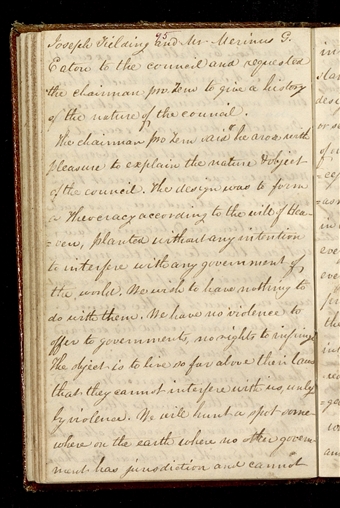 75
Joseph Fielding and Mr. Merinus G.
Eaton to the council and requested
the chairman pro Tem to give a history
of the nature of the council.
The chairman pro Tem said he arose with
pleasure to explain the nature & object
of the council. The design was to form
a Theocracy according to the will of Hea-
=ven, planted without any intention
to interfere with any government of
the world. We wish to have nothing to
do with them. We have no violence to
offer to governments, no rights to infringe
The object is to live so far above their laws
that they cannot interfere with us, unless
by violence. We will hunt a spot some-
where on the earth where no other govern-
ment has jurisdiction and cannot